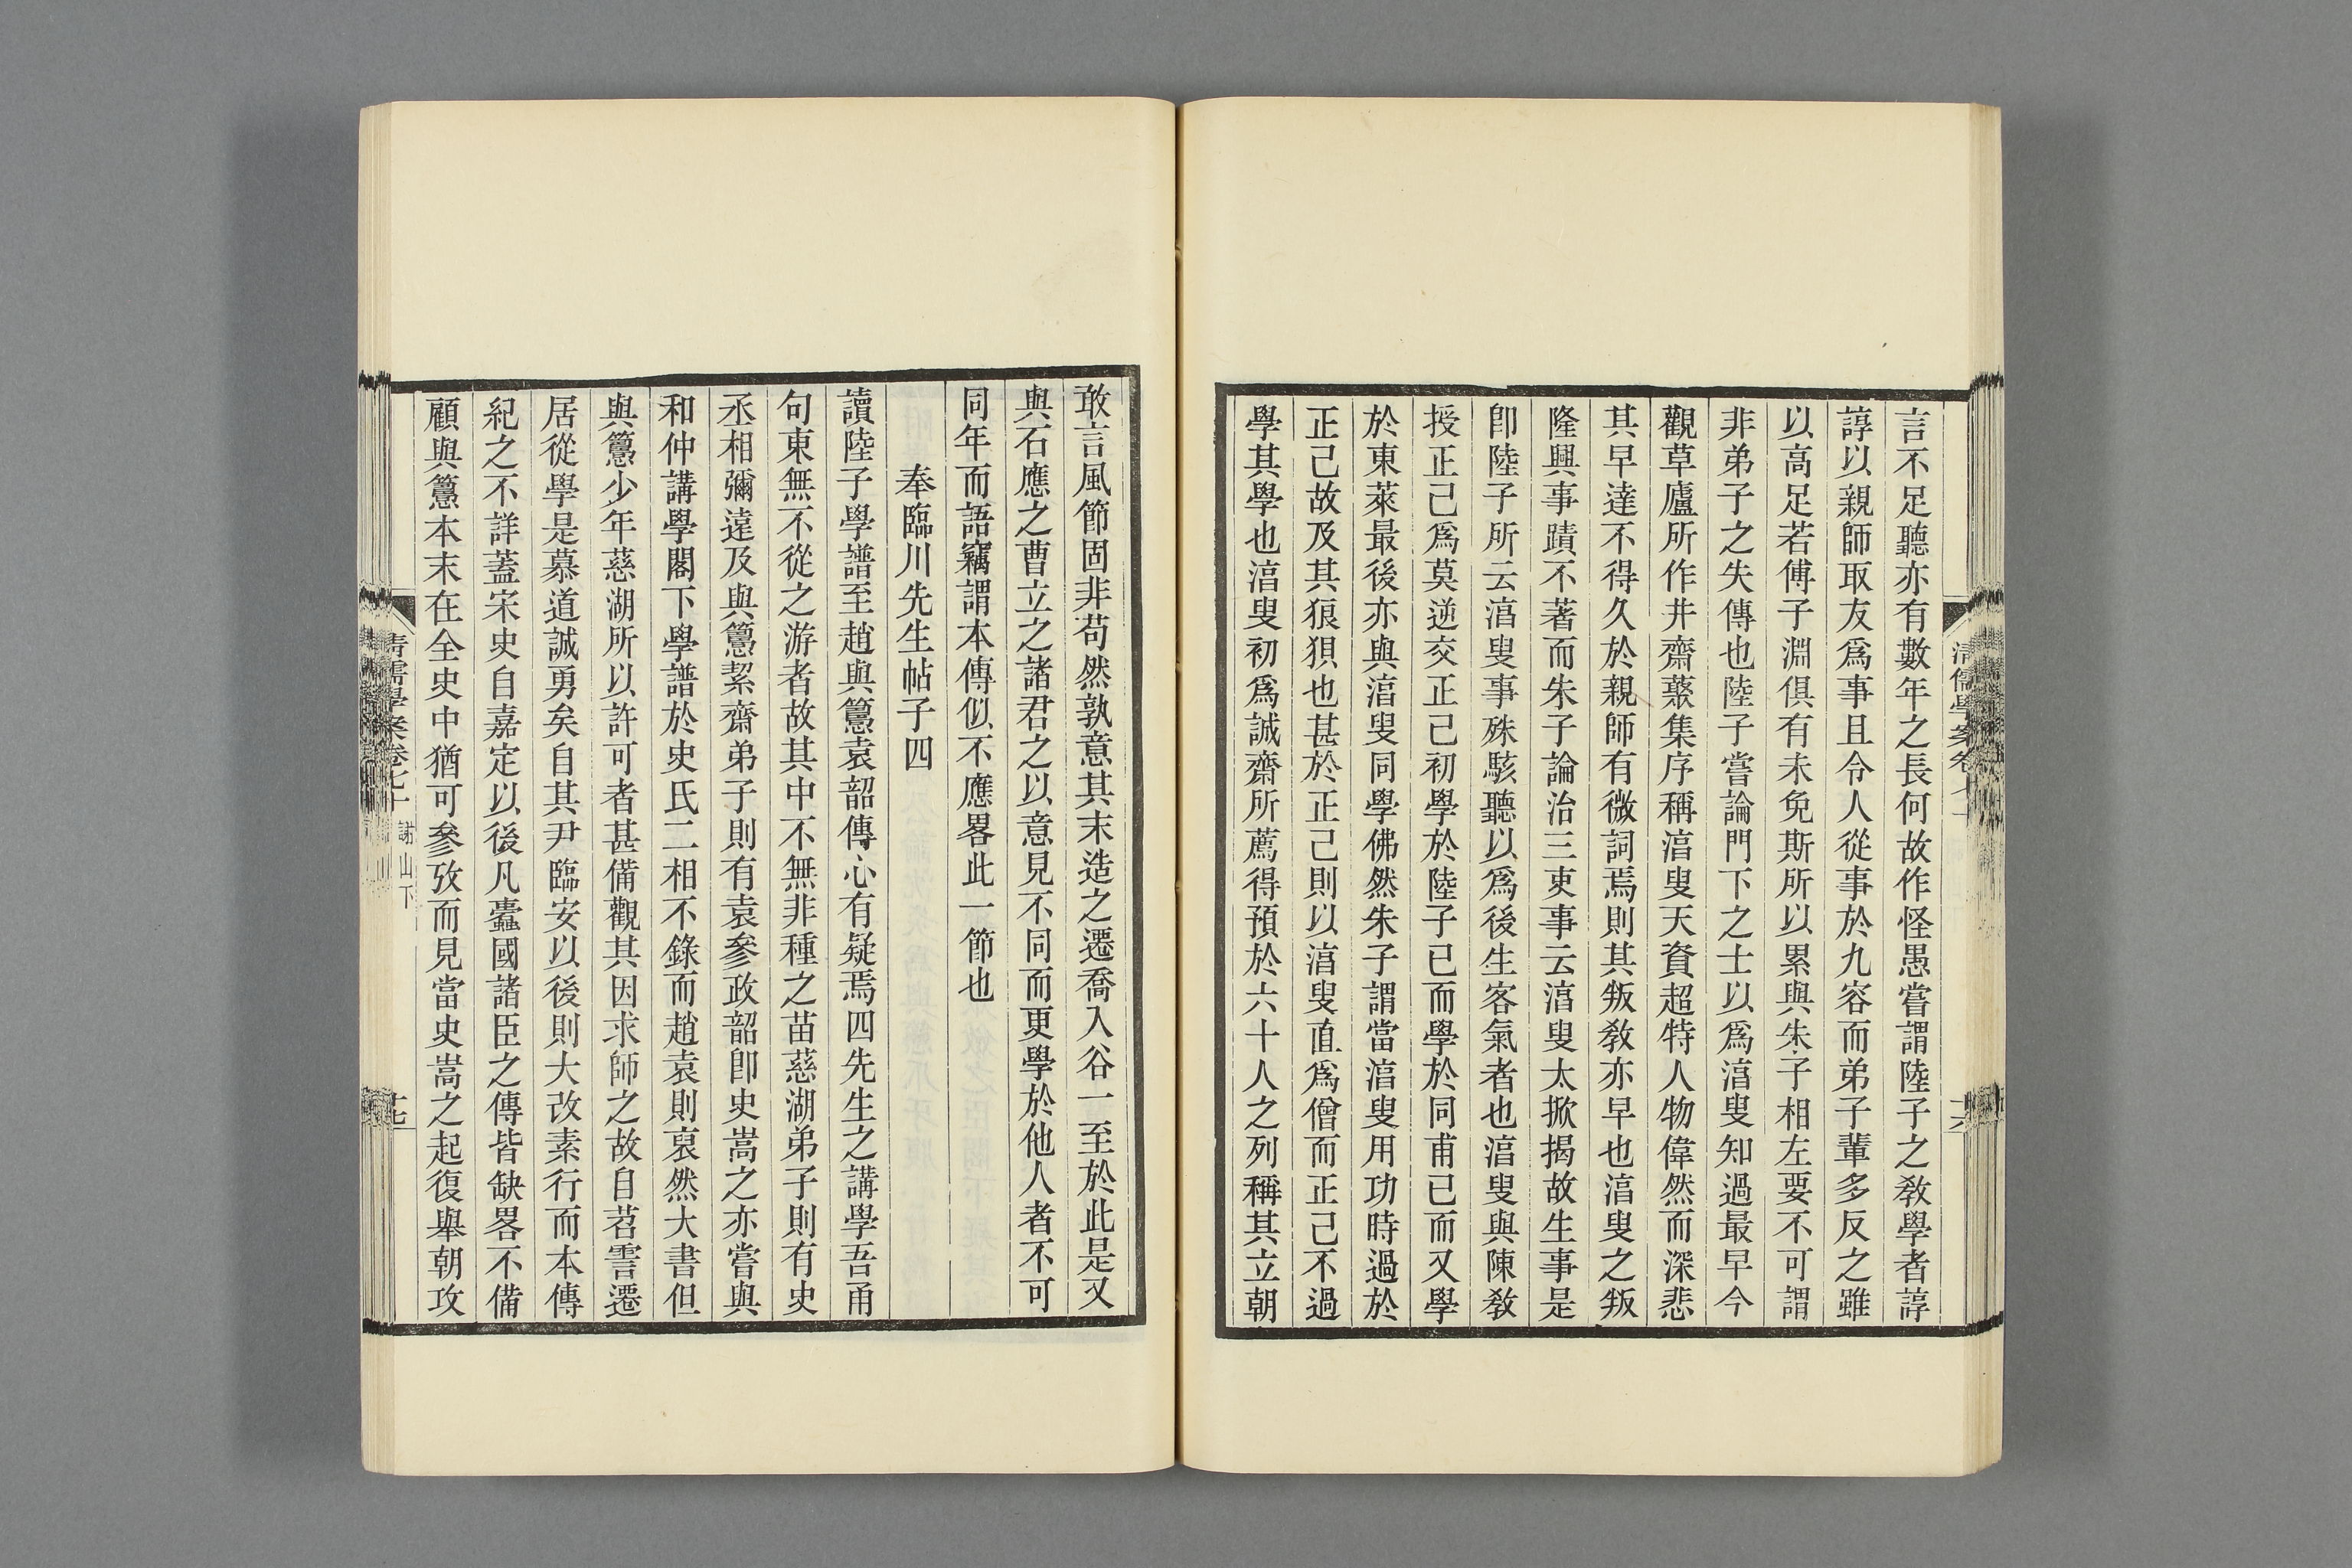 言不足聽亦有數年之長何故作怪愚嘗謂陸子之教學者諄
諄以親師取友爲事且令人從事於九容而弟子輩多反之雖
以高足若傅子淵俱有未免斯所以累與朱子相左要不可謂
非弟子之失傳也陸子嘗論門下之士以爲湻叟知過最早今
觀草廬所作井齋藂集序稱湻叟天資超特人物偉然而深悲
其早達不得久於親師有微詞焉則其叛教亦早也湻叟之叛
隆興事蹟不著而朱子論治三吏事云湻叟太掀揭故生事是
卽陸子所云湻叟事殊駭聽以爲後生客氣者也湻叟與陳教
授正己爲莫逆交正己初學於陸子已而學於同甫已而又學
於東萊最後亦與湻叟同學佛然朱子謂當湻叟用功時過於
正己故及其狼狽也甚於正己則以湻叟直爲僧而正己不過
學其學也湻叟初爲誠齋所薦得預於六十人之列稱其立朝
敢言風節固非苟然孰意其末造之遷喬入谷一至於此是又
與石應之曹立之諸君之以意見不同而更學於他人者不可
同年而語竊謂本傳似不應畧此一節也
奉臨川先生帖子四
讀陸子學譜至趙與𥲅袁韶傳心有疑焉四先生之講學吾甬
句東無不從之游者故其中不無非種之苗慈湖弟子則有史
丞相彌遠及與𥲅絜齋弟子則有袁參政韶卽史嵩之亦嘗與
和仲講學閣下學譜於史氏二相不錄而趙袁則裒然大書但
與𥲅少年慈湖所以許可者甚備觀其因求師之故自苕霅遷
居從學是慕道誠勇矣自其尹臨安以後則大改素行而本傳
紀之不詳蓋宋史自嘉定以後凡蠹國諸臣之傳皆缺畧不備
顧與𥲅本末在全史中猶可參攷而見當史嵩之起復舉朝攻
清儒學案卷七十 謝山下
十七